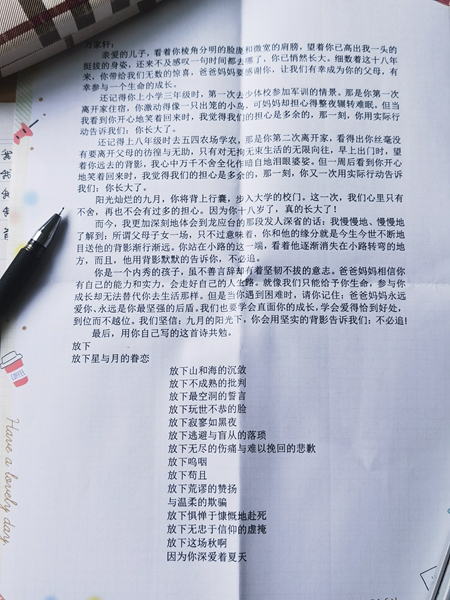 万家轩：
亲爱的儿子，看着你棱角分明的脸庞和微宽的肩膀，望着你已高出我一头的
挺拔的身姿，还来不及感叹一句时间都去哪了，你已悄然长大。细数着这十八年
来，你带给我们无数的惊喜，爸爸妈妈要感谢你，让我们有幸成为你的父母，有
幸参与一个生命的成长。
还记得你上小学三年级时，第一次去少体校参加军训的情景。那是你第一次
离开家住宿，你激动得像一只出笼的小鸟，可妈妈却担心得整夜辗转难眠。但当
我看到你开心地笑着回来时，我觉得我们的担心是多余的，那一刻，你用实际行
动告诉我们，你长大了。
还记得上八年级时去五四农场学农，那是你第二次离开家，看得出你丝毫没
有要离开父母的彷徨与无助，只有对无拘无束生活的无限向往，早上出门时，望
着你远去的背影，我心中万千不舍全化作暗自地泪眼婆娑。但一周后看到你开心
地笑着回来时，我觉得我们的担心是多余的，那一刻，你又一次用实际行动告诉
我们：你长大了。
阳光灿烂的九月，你将背上行囊，步入大学的校门。这一次，我们心里只有
不舍，再也不会有过多的担心。因为你十八岁了，真的长大了！
而今，我更加深刻地体会到龙应台的那段发人深省的话：我慢慢地、慢慢地
了解到：所谓父母子女一场，只不过意味着，你和他的缘分就是今生今世不断地
目送他的背影渐行渐远。你站在小路的这一端，看着他逐渐消失在小路转弯的地
方，而且，他用背影默默的告诉你，不必追。
你是一个内秀的孩子，虽不善言辞却有着坚韧不拔的意志。爸爸妈妈相信你
有自己的能力和实力，会走好自己的人生路。就像我们只能给予你生命，参与你
成长却无法替代你去生活那样。但是当你遇到困难时，请你记住：爸爸妈妈永远
爱你、永远是你最坚强的后盾。我们也要学会直面你的成长，学会爱得恰到好处，
到位而不越位。我们坚信：九月的阳光下，你会用坚实的背影告诉我们：不必追！
最后，用你自己写的这首诗共勉。
放下
放下星与月的眷恋
放下山和海的沉敛
放下不成熟的批判
放下最空洞的誓言
放下玩世不恭的脸
放下寂寥如黑夜
放下逃避与盲从的落琐
放下无尽的伤痛与难以挽回的悲歉
放下呜咽
放下苟且
放下荒谬的赞扬
与温柔的欺骗
放下惧惮于慷慨地赴死
放下无忠于信仰的虚掩
放下这场秋啊
因为你深爱着夏天
Have a lovely day
COFFEE